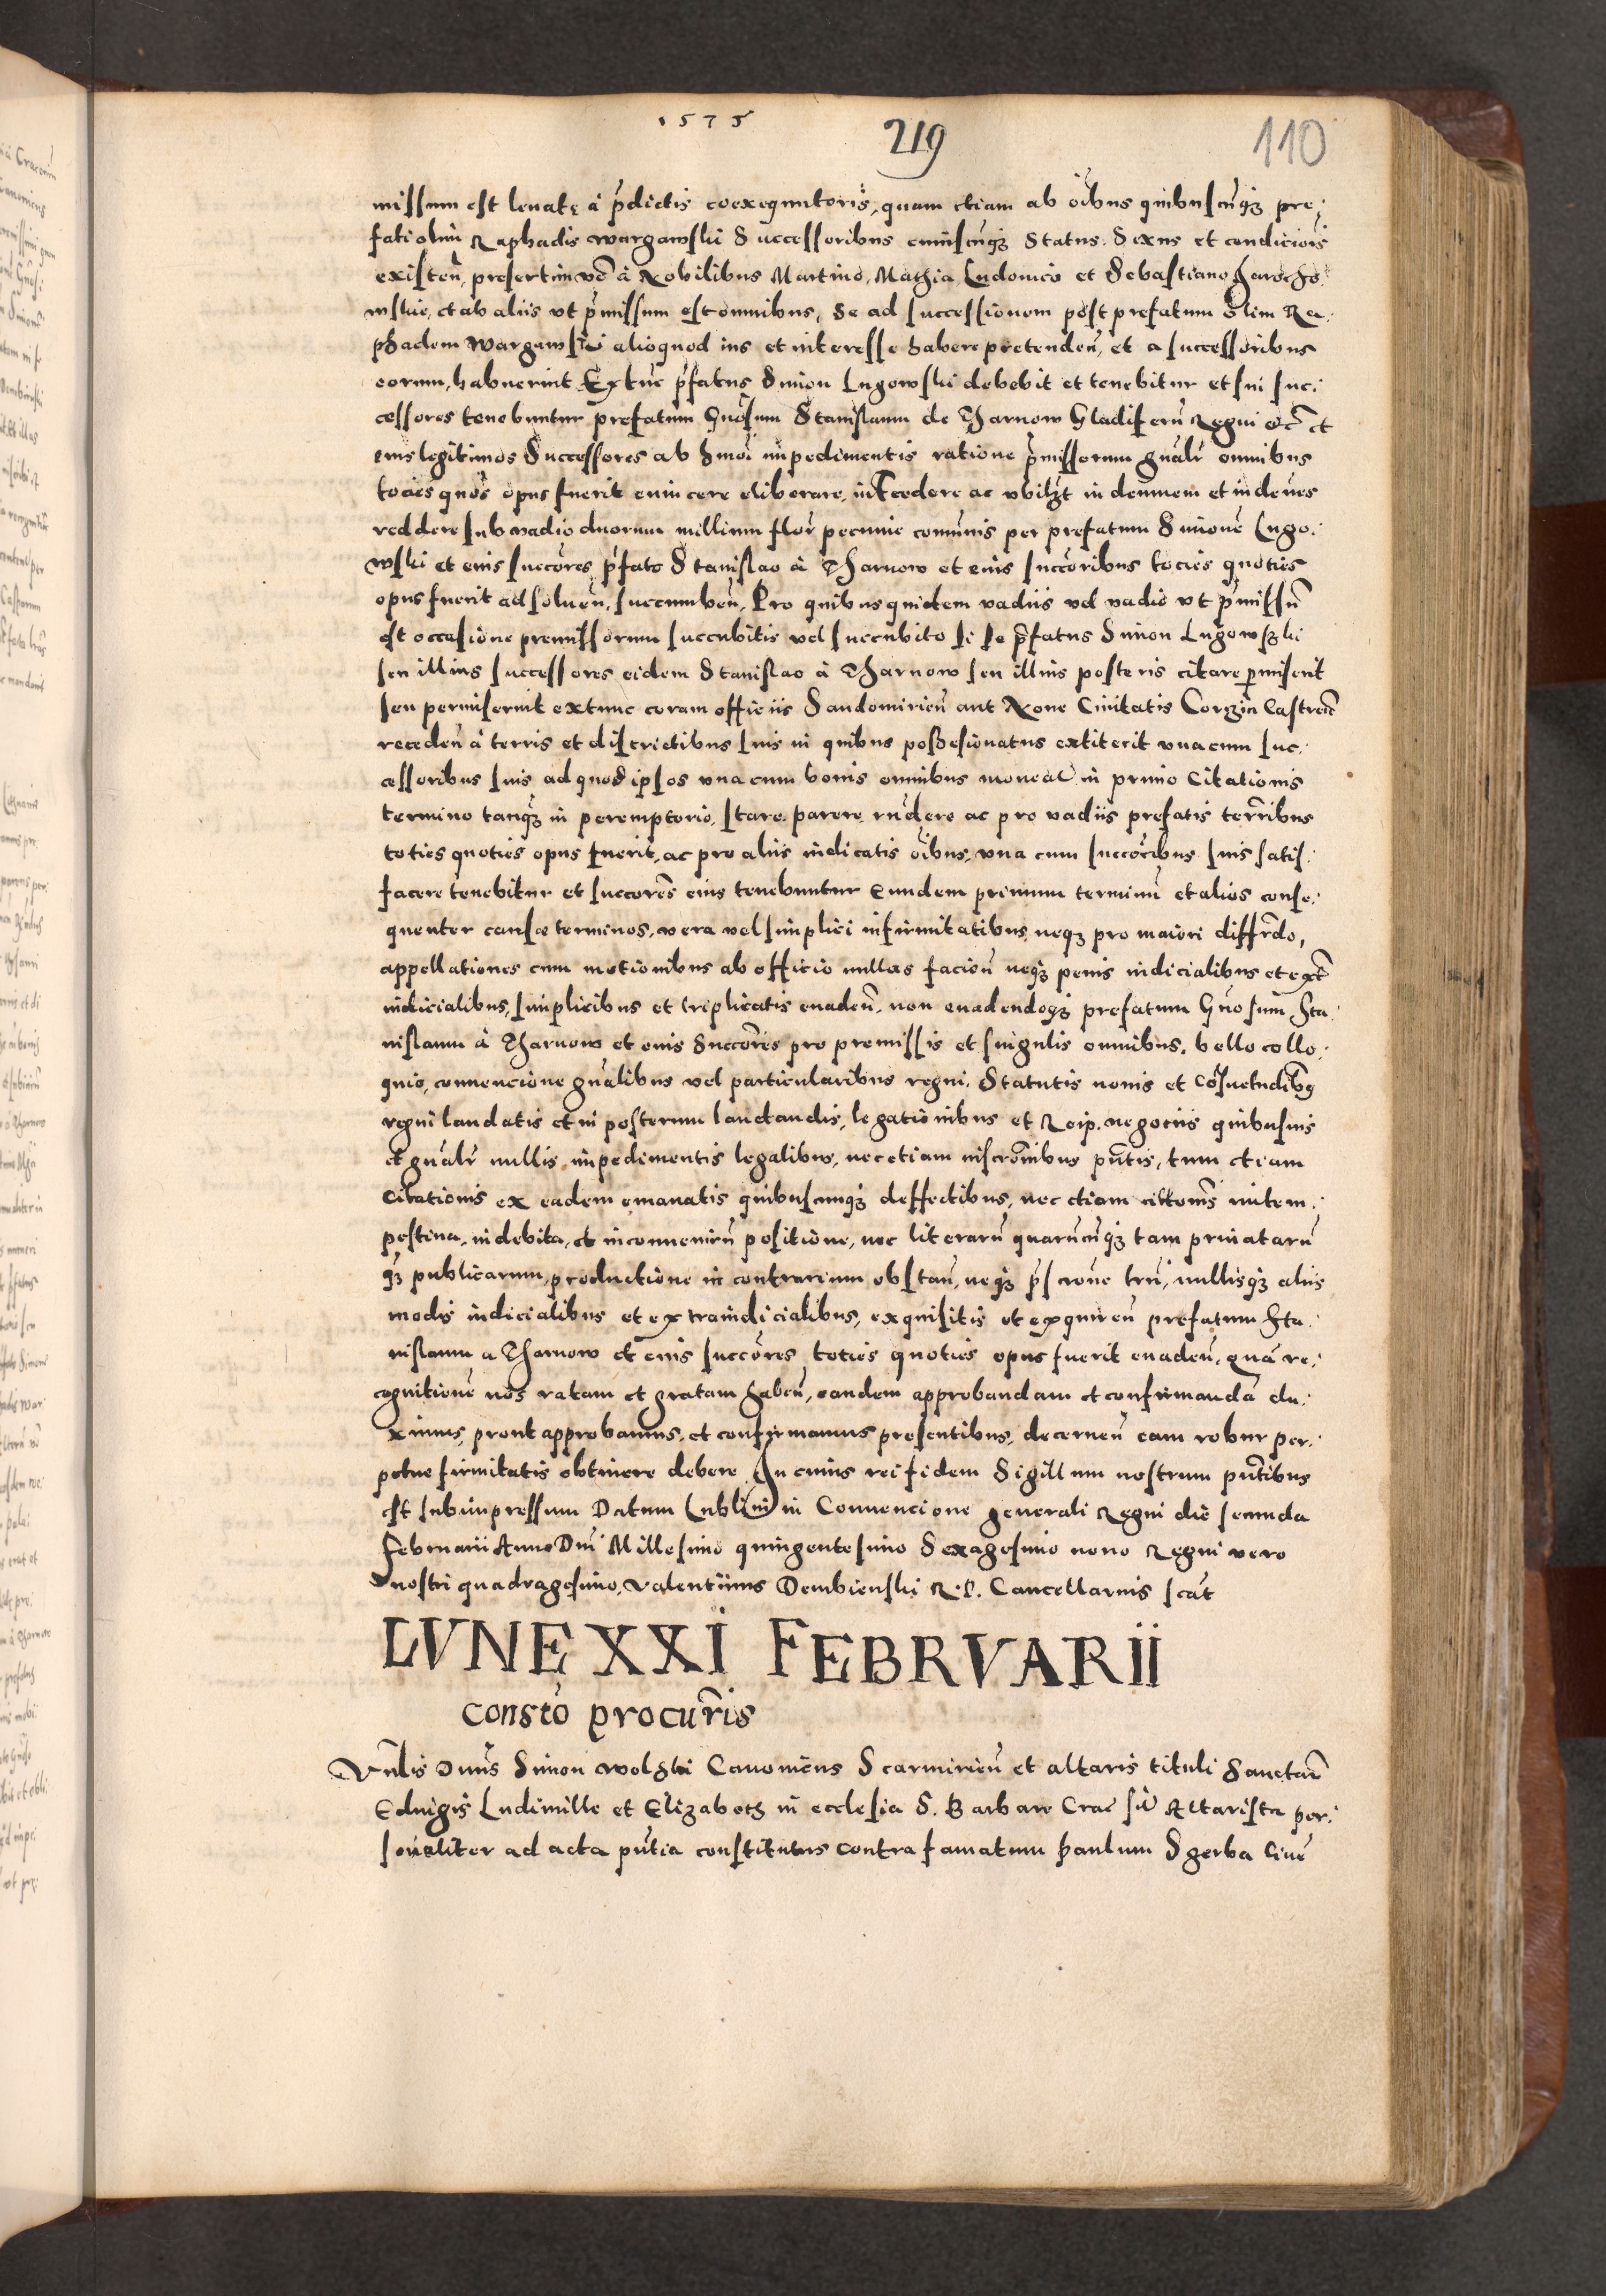 1575
219
110
missum est levate à p̃dictis coexequutoris, quam etiam ab oĩbus quibuscũq; pre-
fati olim Raphaelis Wargawski Successoribus cuiuscũq; Status Sexus et condicionis
existeñ, presertim vẽ à Nobilibus Martino, Mathia Ludovico et Sebastiano
wskie, et ab aliis ut p̃missum est omnibus, se ad successionem post prefatum olim Ra-
phaelem Wargawski aliquod ius et interesse habere pretendeñ, et a successoribus
eorum, habuerint Extũc p̃fatus Simon Lugowski debebit et tenebitur et sui suc-
cessores tenebuntur prefatum Gñosum Stanislaum de Tharnow Gladiferũ Regni etc̃ et
eius legitimos Successores ab hmõi impedimentis ratione p̃missorum gñalr omnibus
tocies quõs opus fuerit evincere eliberare, intercedere ac ubilz̃t indemnem et indẽnes
reddere sub vadio duorum millium flor̃ pecunie comũnis per prefatum Simonẽ Lugo-
wski et eius succõres p̃fato Stanislao à Tharnow et eius succõribus tocies quoties
opus fuerit adsolueñ, succumbeñ, Pro quibus quidem vadiis vel vadio ut p̃missũ
est occasione premissorum succubitis vel succubito si se p̃fatus Simon Lugowski
seu illius successores eidem Stanislao à Tharnow seu illius posteris citare p̃miserit
seu permiserint extunc coram officiis Sandomirieñ aut None Civitatis Corzin Castreñ
recedeñ à terris et districtibus suis in quibus possesionatus extiterit una cum suc-
cessoribus suis ad quod ipsos una cum bonis omnibus in primo Citationis
termino tanq̃ in peremptorio, stare parere rñdere ac pro vadiis prefatis terr̃ibus
toties quoties opus fuerit, ac pro aliis iudicatis oĩbus, una cum succõribus suis satis-
facere tenebitur et succorẽs eius tenebuntur Eundem primum terminũ et alios conse-
quenter cause terminos, vera vel simplici infirmitatibus, neq; pro maiori diffr̃do,
appellationes cum motionibus ab officio nullas facieñ neq; penis iudicialibus et ext̃
iudicialibus, simplicibus et triplicatis evadeñ, non evadendoq; prefatum Gñosum Sta-
nislaum à Tharnow et eius Succorẽs pro premissis et singulis omnibus, bello collo-
quio, convencione gñalibus vel particularibus regni, Statutis novis et Cõsuetudibq
regni laudatis et in posterum laudandis, legationibus et Reip. negociis quibusvis
et gñalr nullis impedimentis legalibus, nec etiam inscrõnibus pñtis, tum etiam
Citationis ex eadem emanatis quibuscumq; deffectibus, nec etiam cittõnis intem-
pestiva, indebita, et inconveniẽn positione, nec literarũ quarũcũq; tam privatarũ
q̃ publicarum productione in contrarium obstañ, neq; p̃scrõne trũ, nullisq; aliis
modis iudicialibus et extraiudicialibus, exquisitis et exquireñ prefatum Sta-
nislaum a Tharnow et eius succõres toties quoties opus fuerit evadeñ, quã re-
cognitionẽ nos ratam et gratam habeñ, eandem approbandam et confirmandã du-
ximus, prout approbamus, et confirmamus presentibus, decerneñ eam robur per-
petue firmitatis obtinere debere In cuius rei fidem Sigillum nostrum pñtibus
est subimpressum Datum Lublini in Convencione generali Regni die secunda
Februarii Anno Dñi Millesimo quingentesimo Sexagesimo nono Regni vero
nostri quadragesimo, Valentinus Dembienski R. P. Cancellarius scãt
LVNE XXI FEBRVARII
Constõ procur̃is
Vñlis Dñs Simon Wolski Canonicus Scarmirieñ et altaris tituli Sanctar̃
Eduigis Ludimille et Elizabeth in ecclesia S. Barbare Crac̃ Altarista per-
sonaliter ad acta pñtia constitutus contra famatum Paulum Szerba Civẽ